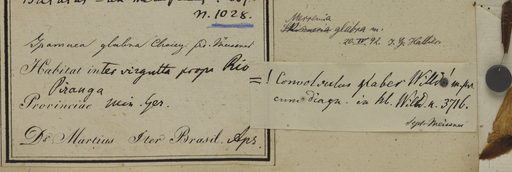 n. 1028.
Ipomoea glabra Choisy fid. Meissner
Habitat inter virgulta prope Rio
Piranga
Provinciae Min. Ger.
Dr Martius Iter Brasil. Apr.
glabra m.
20. IV. 92. Hallier
=! Convolvulus glaber Willd!
cum diagn. in hb. Willd. n. 3716.
Meissner